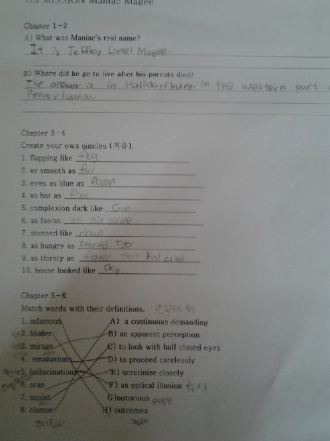 MISSION Maniac Magee
Chapter 1-2
A) What was Maniac's real name?
It is Jeffrey Lionel Magee.
B) Where did he go to live after his parents died?
The answer is in Hollidaysburg in the western part
Chapter 3-4
Create your own similes (직유).
1. flapping like flag
2. as smooth as
3. eyes as blue as ocean
4. as hot as fire
5. complexion dark like
6. as fast as an airplane
7. stunned like
8. as hungry as starved Tiger
9. as thirsty as
10. house looked like ship
Chapter 5-6
Match words with their definitions.
1. infamous A) a continuous demanding
2. blunder B) an apparent perception
3. mirage C) to look with half closed eyes
4. emanations D) to proceed carelessly
5. hallucination E) scrutinize closely
6. scan F) an optical illusion
7. squint G) notorious
8. clamor H) outcomes